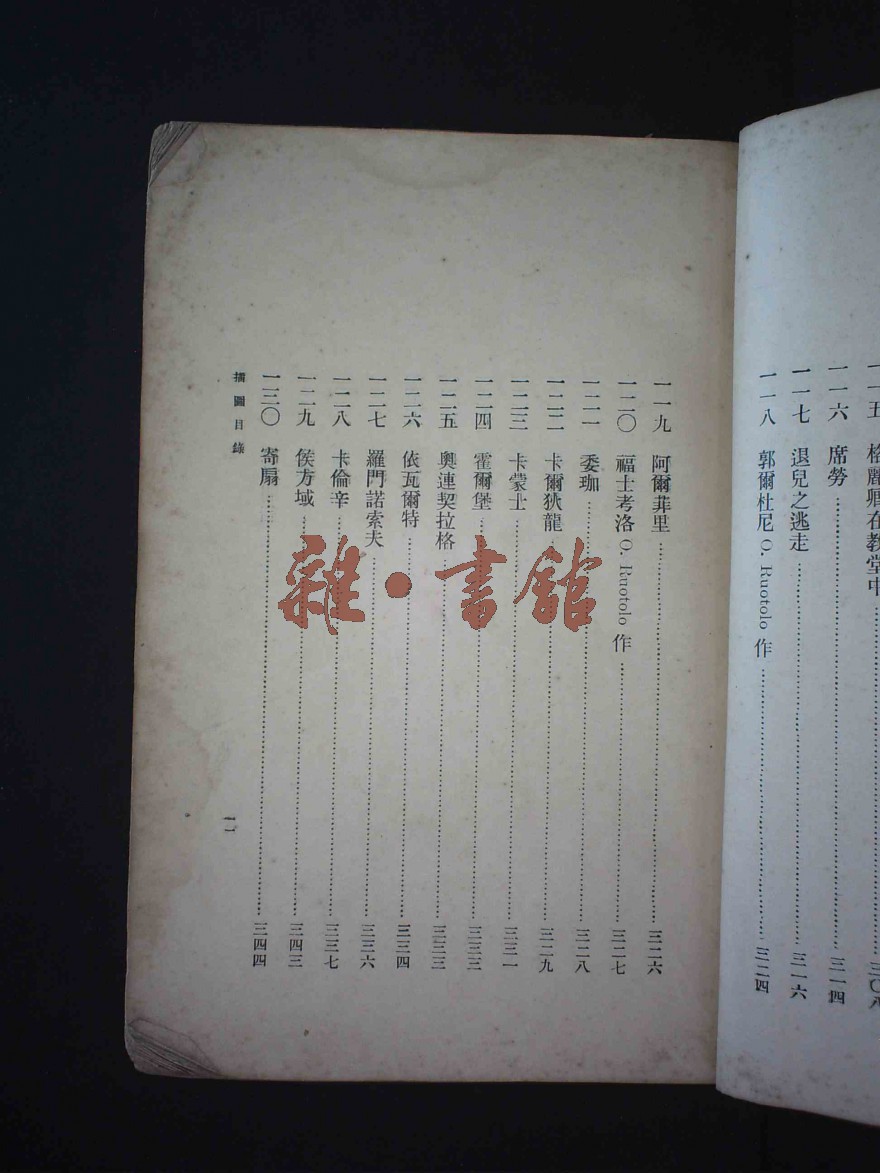 一一五 格麗卿在教堂中……三〇八
一一六 席勞……三一四
一一七 退兒之逃走……三一六
一一八 郭爾杜尼 O. Ruotolo 作……三二四
一一九 阿爾菲里……三二六
一二〇 福士考洛 O. Ruotolo 作……三二七
一二一 委珈……三二八
一二二 卡爾狄龍……三二九
一二三 卡蒙士……三三一
一二四 霍爾堡……三三三
一二五 奧連契拉格……三三三
一二六 依瓦爾特……三三四
一二七 羅門諾索夫……三三六
一二八 卡倫辛……三三七
一二九 侯方域……三四三
一三〇 寄扇……三四四
插圖目錄
一一
雜·書館